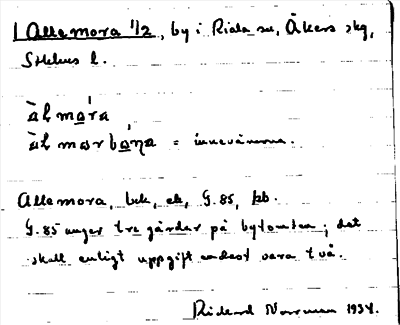 1 Allemora 1/2, by i Riala sn, Åkers skg,
Sthlms l.
àlmo̲ŕa
àlmorbo̲ńa = innevånarna.
Allemora, bek, ek, G. 85, jb.
G. 85 anger tre gårdar på bytomten; det
skall enligt uppgift endast vara två.
Rickard Norrman 1934.